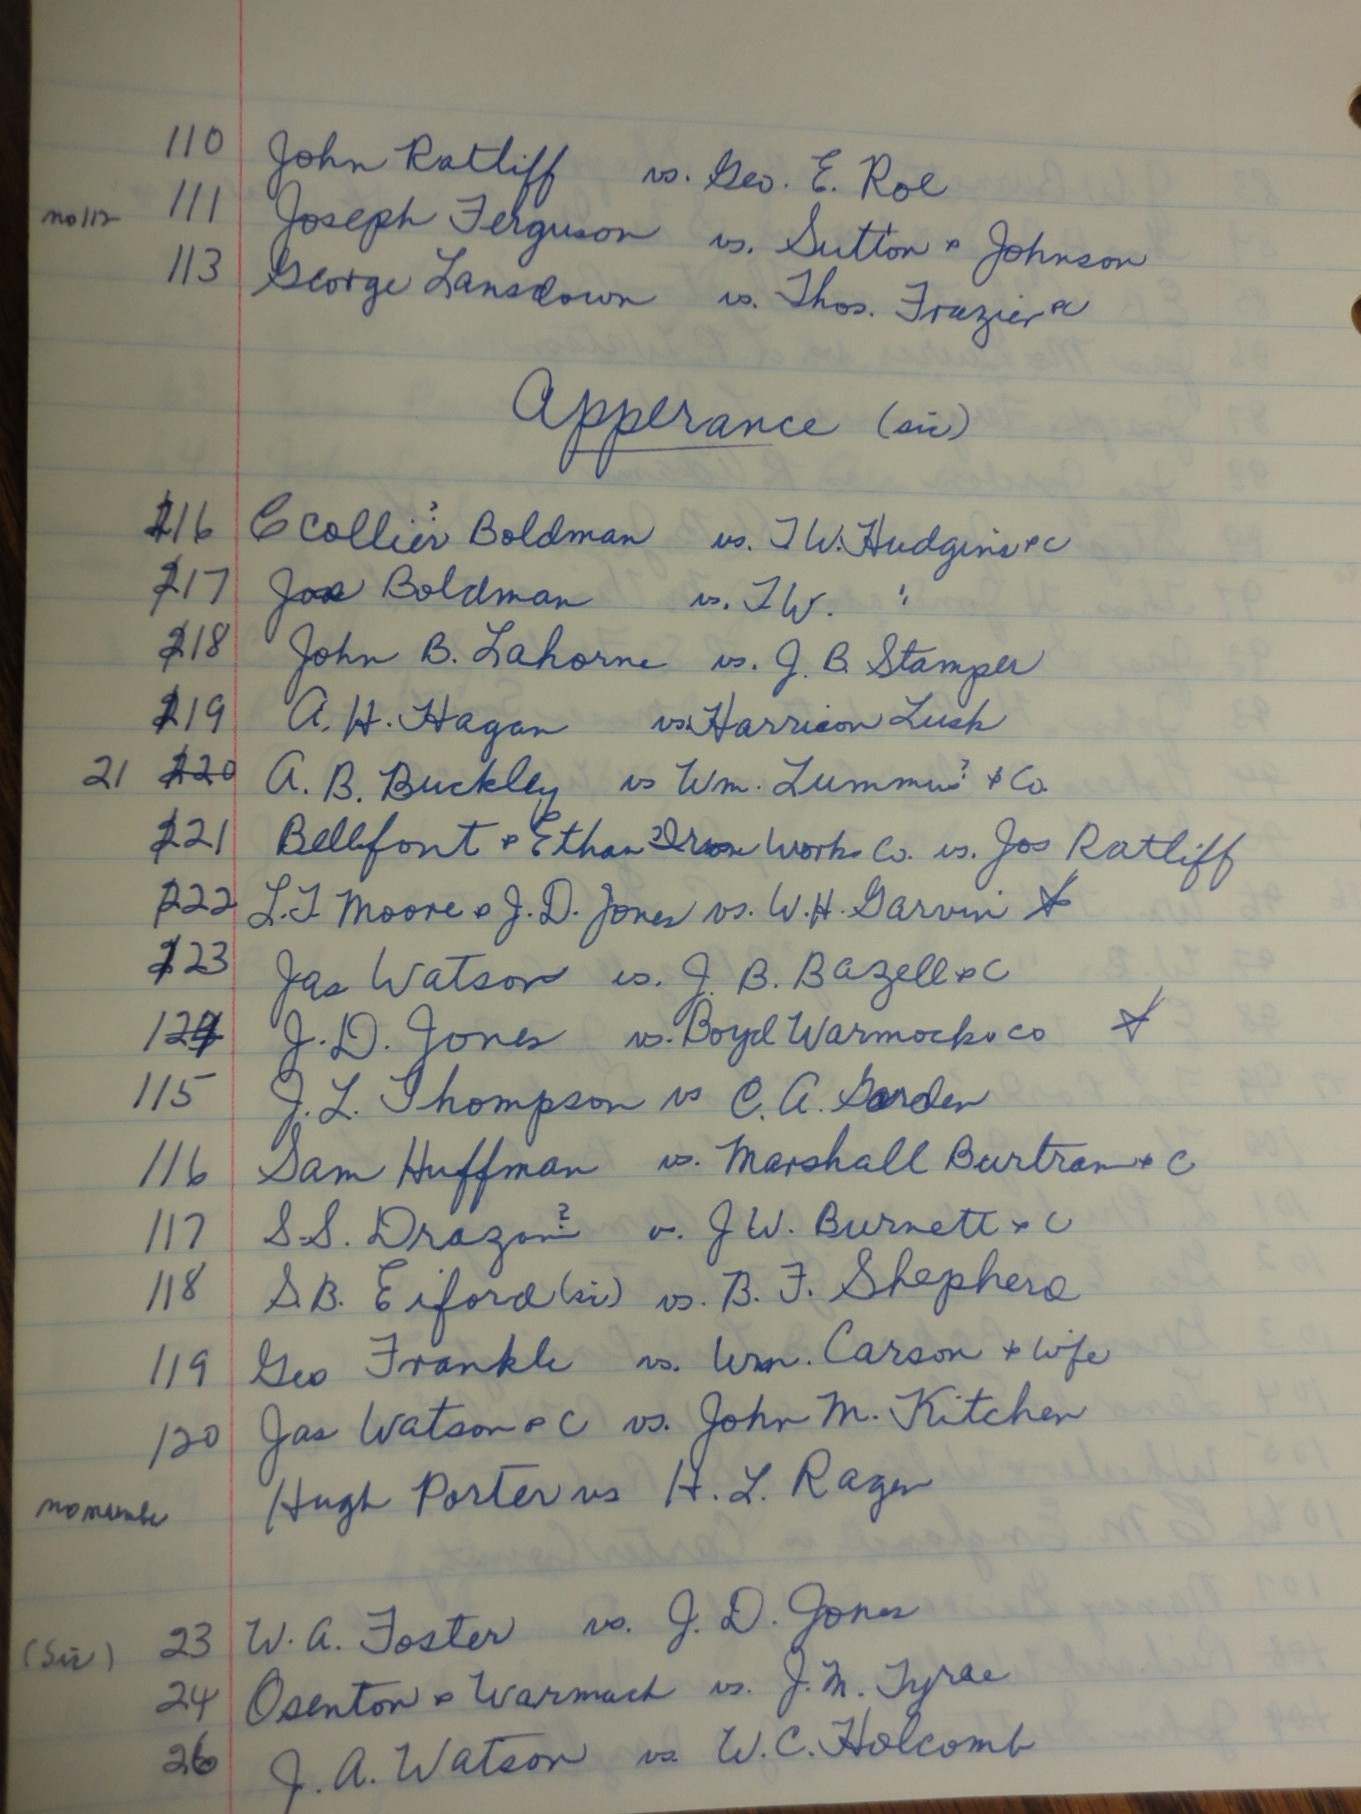 110 John Ratliff vs. Geo. E. Roe
no 112 111 Joseph Ferguson vs. Sutton & Johnson
113 George Lansdown vs. Thos. Frazier &c
Apperance (sic)
216 E Collier? Boldman vs. T W. Hudgins &c
217 Jas Boldman vs. T W. "
218 John B. Lahorne vs. J. B. Stamper
219 A. H. Hagan vs. Harrison Lusk
21 220 A. B. Buckley vs Wm. Lummus? & Co.
221 Bellfont & Ethan? Iron Works Co. vs. Jos Ratliff
222 L. T. Moore & J. D. Jones vs. W. H. Garvin
223 Jas Watson vs. J. B. Bazell &c
124 J. D. Jones vs. Boyd Warmock & co
115 J. L. Thompson vs C. A. Garden
116 Sam Huffman vs. Marshall Burtram & C
117 S. S. Drazon? v. J W. Burnett & C
118 S. B. Eiford (sic) vs. B. F. Shepherd
119 Geo Frankle vs. Wm. Carson & wife
120 Jas Watson & C vs. John M. Kitchen
no number Hugh Porter vs H. L. Rager
(Sic) 23 W. A. Foster vs. J. D. Jones
24 Osenton & Warmack vs. J. M. Tyree
26 J. A. Watson vs. W. C. Holcomb